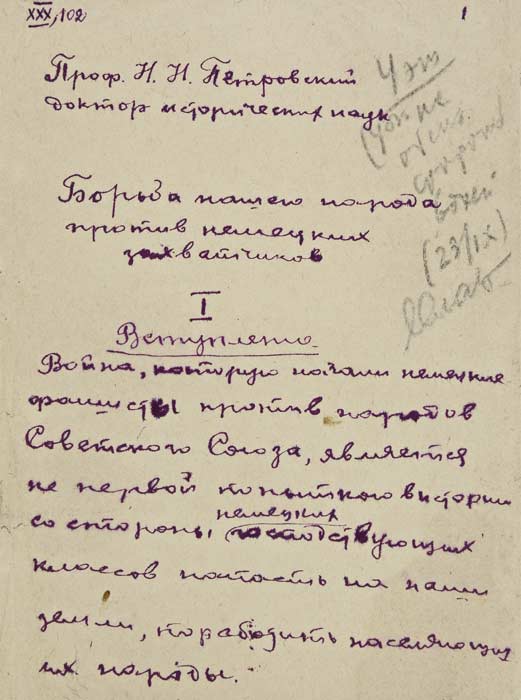 XXX, 102
1
Проф. Н. Н. Петровский
доктор исторических наук
Борьба нашего народа
против немецких
захватчиков
I
Вступление
Война, которую начали немецкие
фашисты против народов
Советского Союза, является
не первой попыткою в истории
со стороны немецких господствующих
классов напасть на наши
земли, поработить населяющих
их народы.
(23/IX)